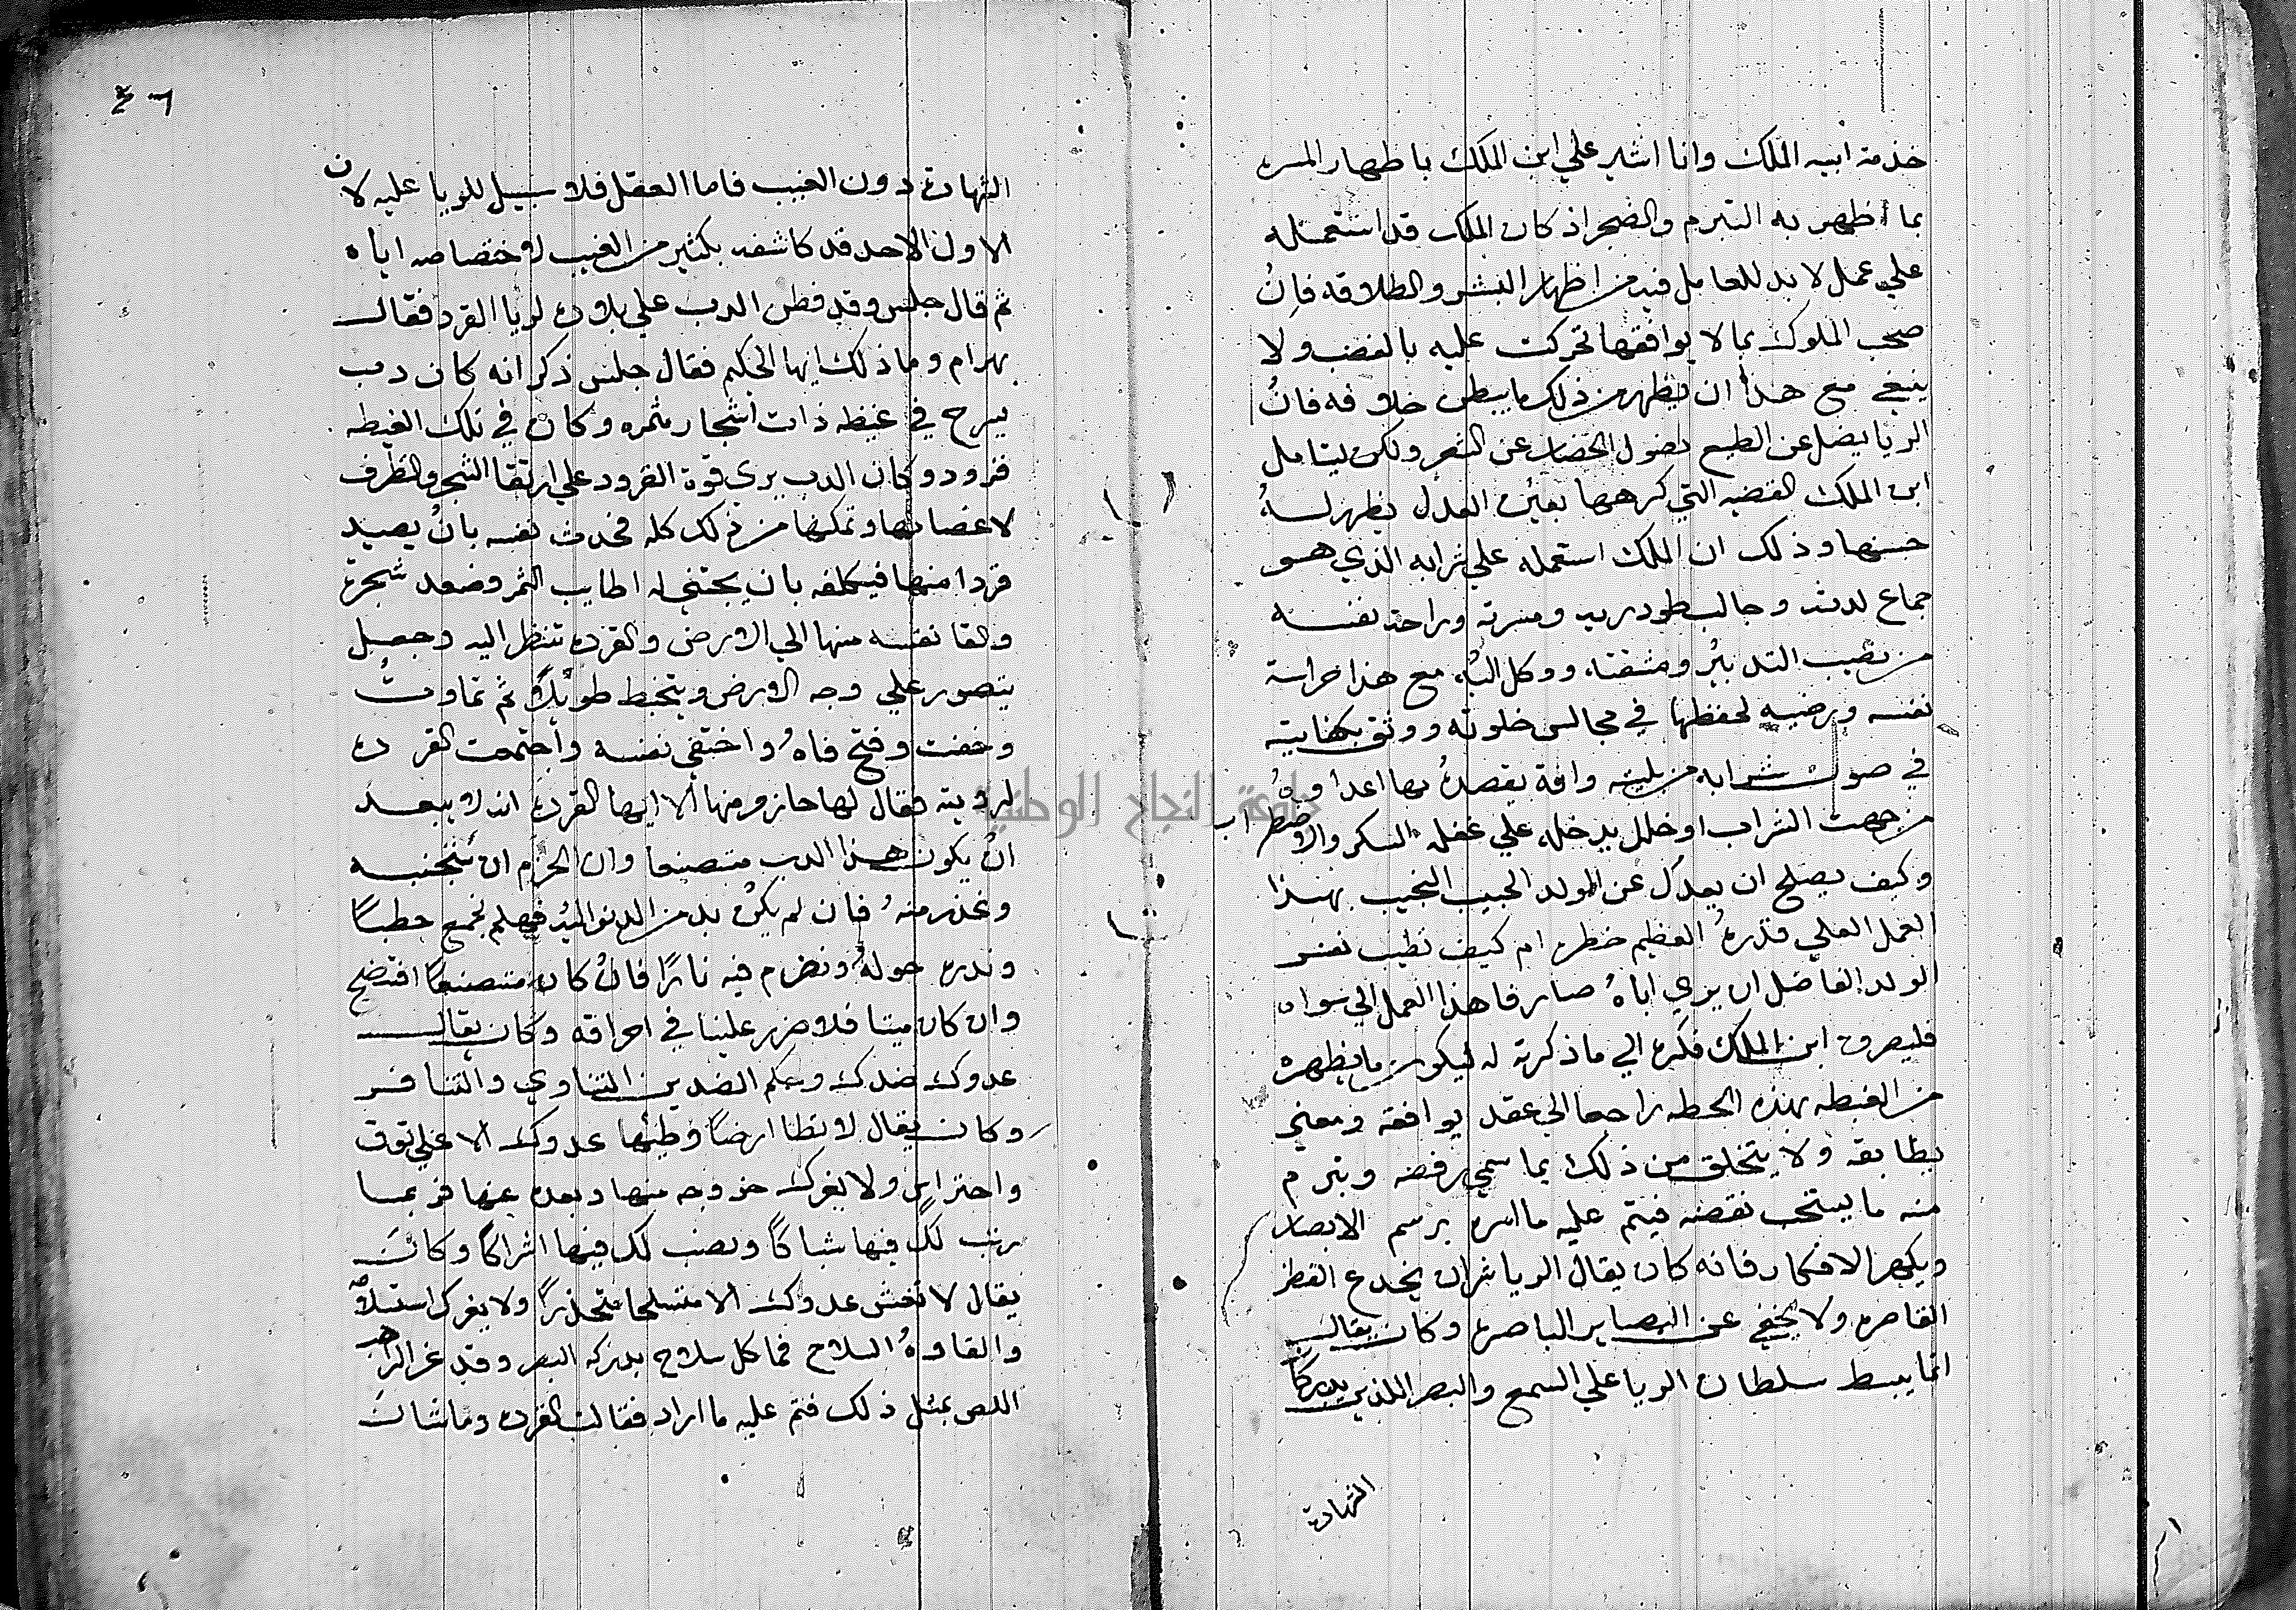 خذمة ابيه الملك وانا اشير علي ابن الملك باظهار المسره
بما اظهر به التبرم والضجر اذ كان الملك قد استعمله
علي عمل لا بد للعامل فيه من اظهار البشر والطلاقه فان
صحب الملوك بما لا يوافقها تحركت عليه بالغضب ولا
ينبغي مع هذا ان يظهر من ذلك ما يبطن خلافه فان
الريا يضل عن الطبع نصول الخضاب عن الشعر ولكن ليتامل
ابن الملك القضيه التي كرهها بعين العدل يظهر له
حسنها وذلك ان الملك استعمله علي شرابه الذي هو
جماع لذته وجالب طو دربه ومسرته وراحة نفسه
من نصب التدبير ومشقته ووكل اليه مع هذا حراسة
نفسه ورضيه لحفظها في مجالس خلوته ووثق بكفايته
في صون شرابه من افة يقصده بها اعداوه
من جهت الشراب او خلل يدخله علي غفله السكر والاضطراب
وكيف يصلح ان يعدل عن الولد الحبيب النجيب بهذا
العمل العلي قدره العظيم خطره ام كيف تطيب نفس
الولد الفاضل ان يري اباه صارفا هذا العمل الي سواه
فليصرف ابن الملك فكره الي ما ذكرته له ليكون ما يظهره
من الغبطه بهذه الخطه راجعا الي عقد يوافقه ومعني
يطابقه ولا يتخلق من ذلك بما سمي رفضه ويبرم
منه ما يستحب نقضه فيتم عليه ما اسره برسم الابصار
ويكهر الافكار فانه كان يقال الريا شران يخدع الفطر
القاصره ولا يخفي عن البصاير الباصره وكان يقال
انما يبسط سلطان الريا علي السمع والبصر اللذين يدركا
الشهادة
٤٦
الشهادة دون الغيب فاما العقل فلا سبيل للريا عليه لان
الاول الاحد قد كاشفه بكثير من الغيب لاختصاصه اياه
ثم قال جلس وقد فطن الدب علي بلادته لريا القرد فقال
بهرام وما ذلك ايها الحكيم فقال جلس ذكر انه كان دب
يسرح في غيظه ذات اشجار مثمره وكان في تلك الغيظه
قرود وكان الدب يري قوة القرود علي ارتقا الشجر والتظرف
لاغصانها وتمكنها من ذلك كله فحدث نفسه بان يصيد
قردا منها فيكلفه بان يجتني له اطايب الثمر وصعد شجرة
والقا نفسه منها الي الارض والقرده تنظر اليه وجعل
يتصور علي وجه الارض ويتخبط طويلا ثم تماوت
وخفت وفتح فاه واختفي نفسه واجتمعت القرده
لرويته فقال لها حازم منها الا ايها القرده انه لا يبعد
ان يكون هذا الدب متصنعا وان الحزم ان نتجنبه
ونحذر منه فان لم يكن بد من الدنو اليه فهلم نجمع حطبا
وندره حوله ونضرم فيه نارا فان كان متصنعا افتضح
وان كان ميتا فلا ضرر علينا في احراقه وكان يقال
عدوك ضدك وحكم الضدين التناوي والتنافر
وكان يقال لا تطا ارضا وطيها عدوك الا علي توق
واحتراس ولا يغرك خروجه منها وبعده عنها فربما
رتب لك فيها شباكا ونصب لك فيها اشراكا وكان
يقال لا تغش عدوك الا متسلحا متحذرا ولا يغرك استسلامه
والقاوه السلاح فما كل سلاح يدركه البصر وقد غر الراهب
اللص بمثل ذلك فتم عليه ما اراد فقالت القرده وما شان
جامعة النجاح الوطنية